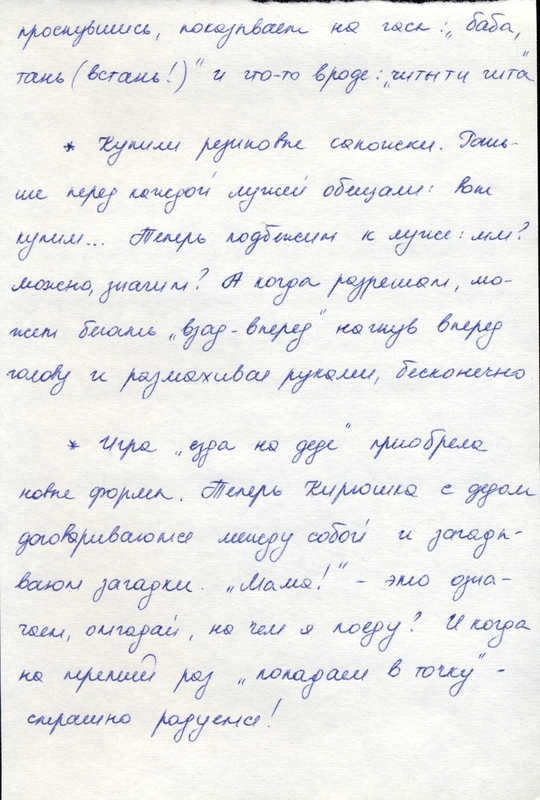 проснувшись, показывает на часы: „баба,
тань (встань!)" и что-то вроде: „читыти чита"
* Купили резиновые сапожки. Рань-
ше перед каждой лужей обещали: вот
купим... Теперь подбежит к луже: мм?
можно, значит? А когда разрешат, мо-
жет бегать „взад-вперед" нагнув вперед
голову и размахивая руками, бесконечно
* Игра „езда на деде" приобрела
новые формы. Теперь Кирюшка с дедом
договариваются между собой и загады-
вают загадки. „Мама!" - это озна-
чает, отгадай, на чем я поеду? И когда
на первый раз „попадает в точку" -
страшно радуется!